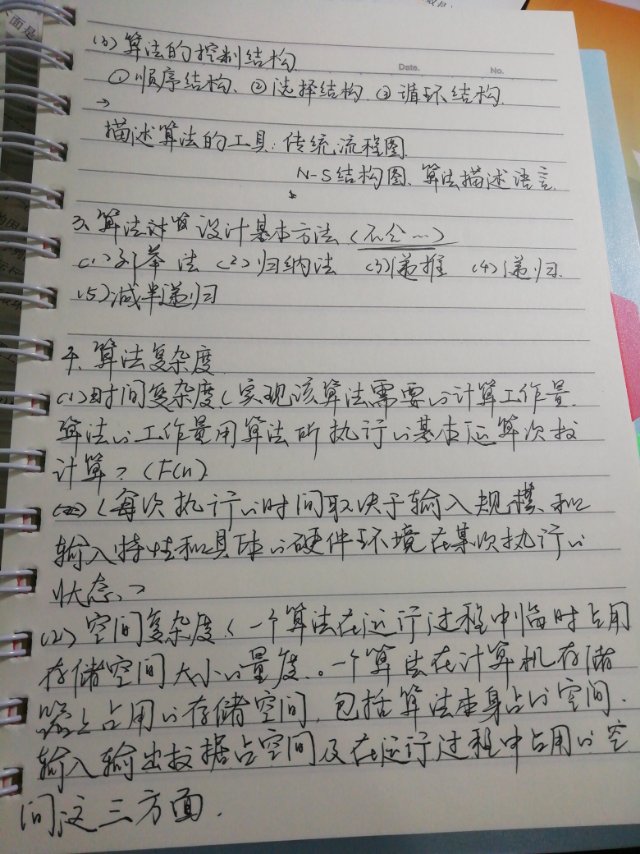 面是
Date. No.
(3) 算法的控制结构
①顺序结构、②选择结构、③循环结构.
描述算法的工具:传统流程图.
N-S结构图、算法描述语言.
3、算法计算设计基本方法(不会…)
(1)列举法 (2)归纳法 (3)递推 (4)递归.
(5)减半递归
4、算法复杂度
(1)时间复杂度(实现该算法需要的计算工作量.
算法的工作量用算法所执行的基本运算次数
计算)(F(n)
(每次执行的时间取决于输入规模和
输入特性和具体的硬件环境在某次执行的
状态、)
(2)空间复杂度(一个算法在运行过程中临时占用
存储空间大小的量度。一个算法在计算机存储
器上占用的存储空间,包括算法本身占的空间.
输入输出数据占空间及在运行过程中占用的空
间这三方面.